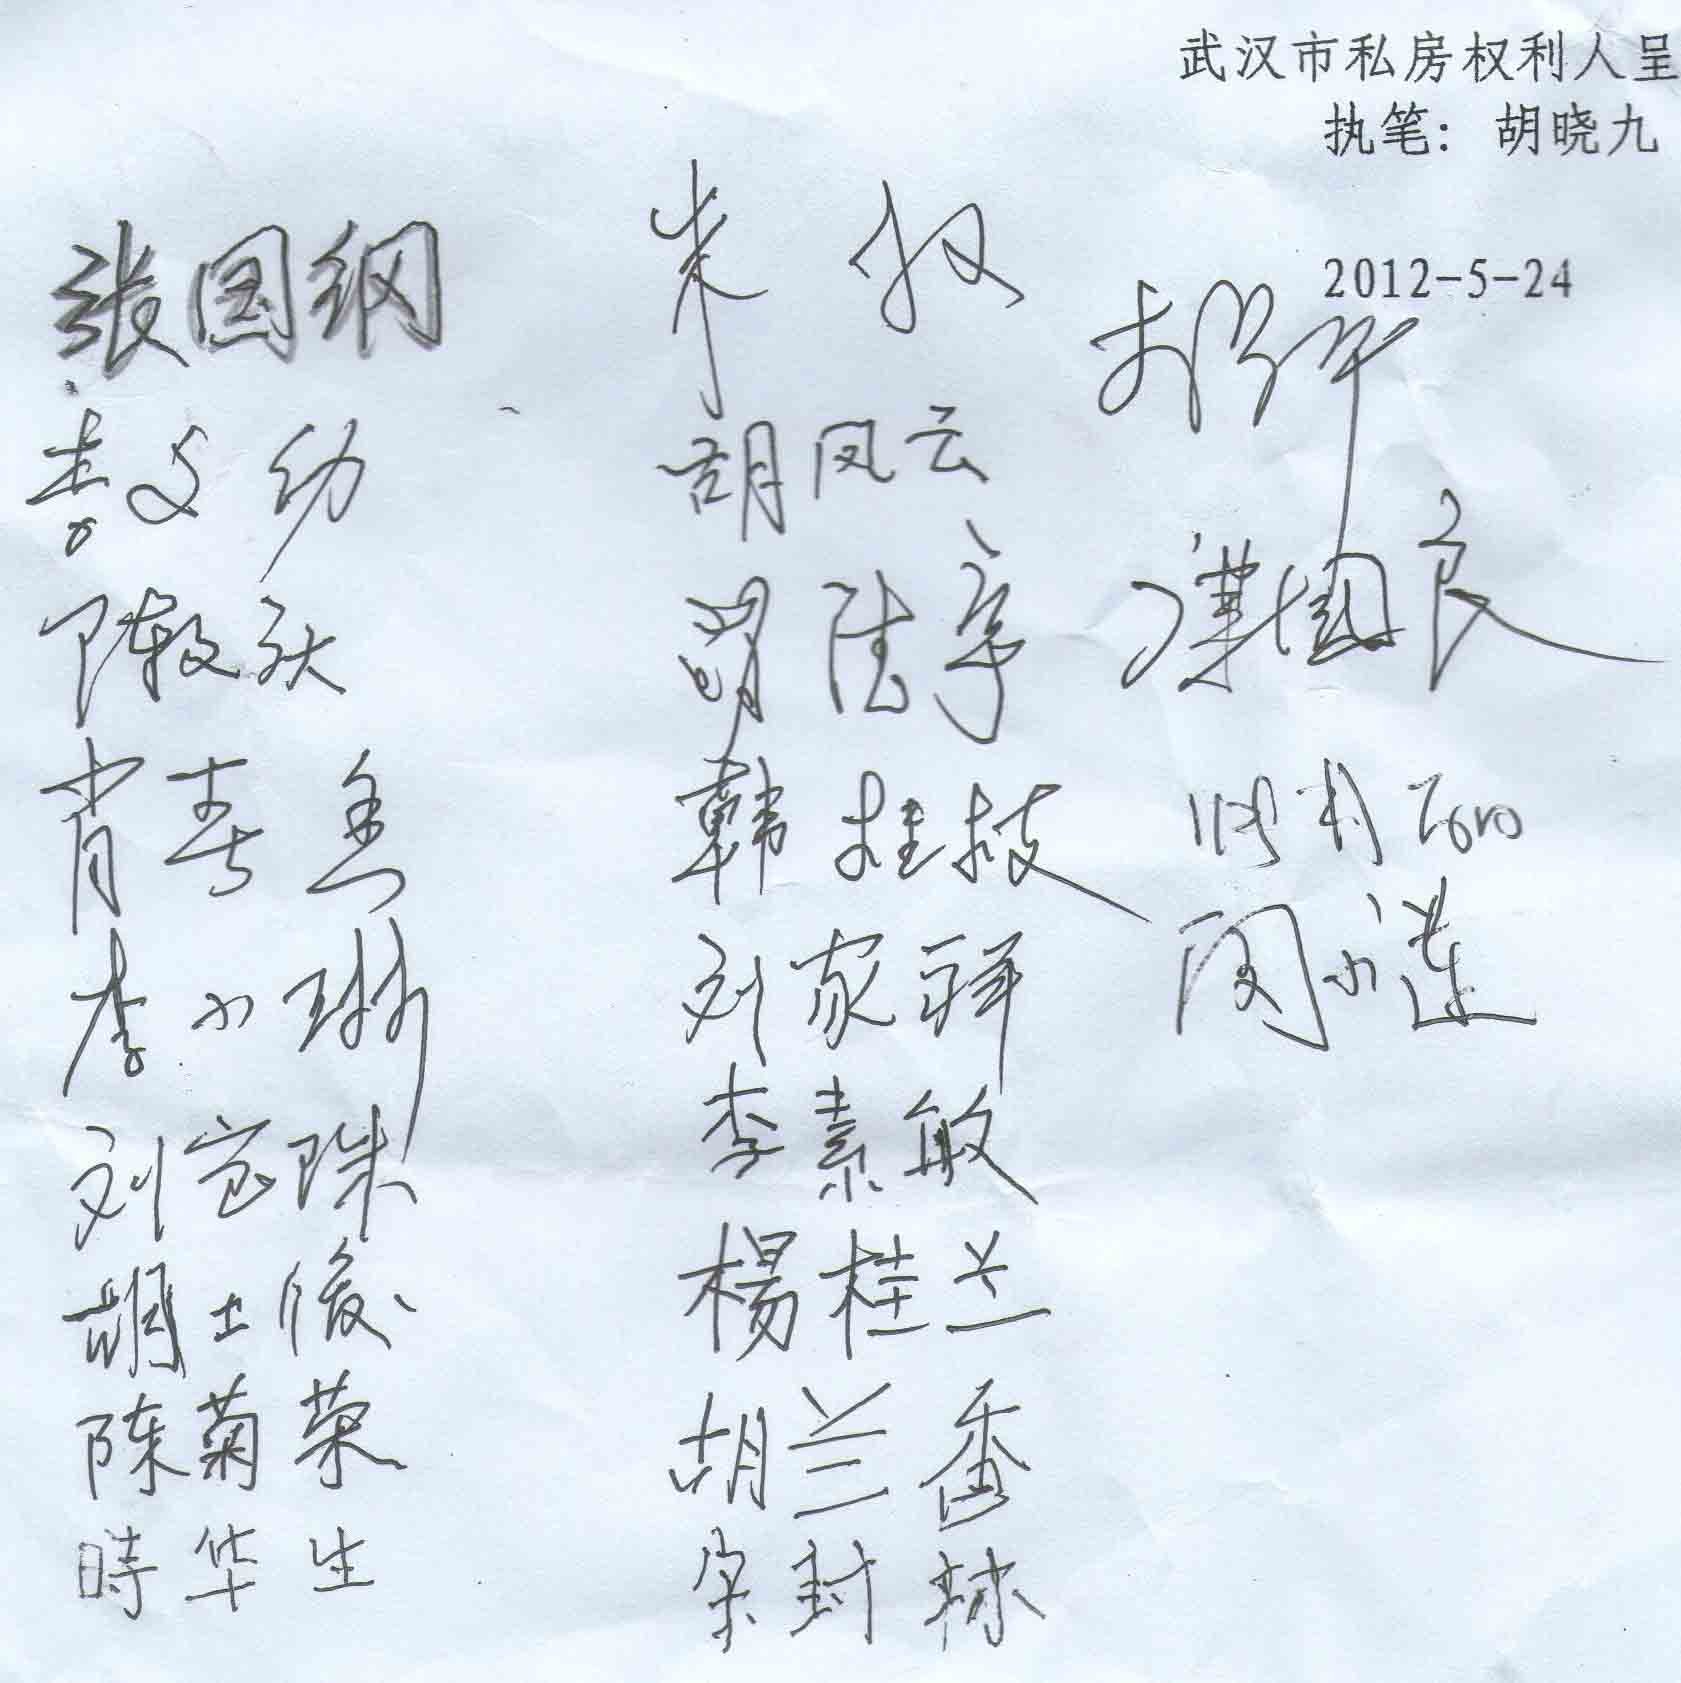 武汉市私房权利人呈
执笔：胡晓九
2012-5-24
张国纲
朱权
李文幼
胡凤云
胡陆亭
谭国良
肖春
韩桂枝
李小琳
刘家祥
闵小莲
刘宝珠
李素敏
胡士俊
楊桂兰
陈菊荣
胡兰香
時华生
宋封林